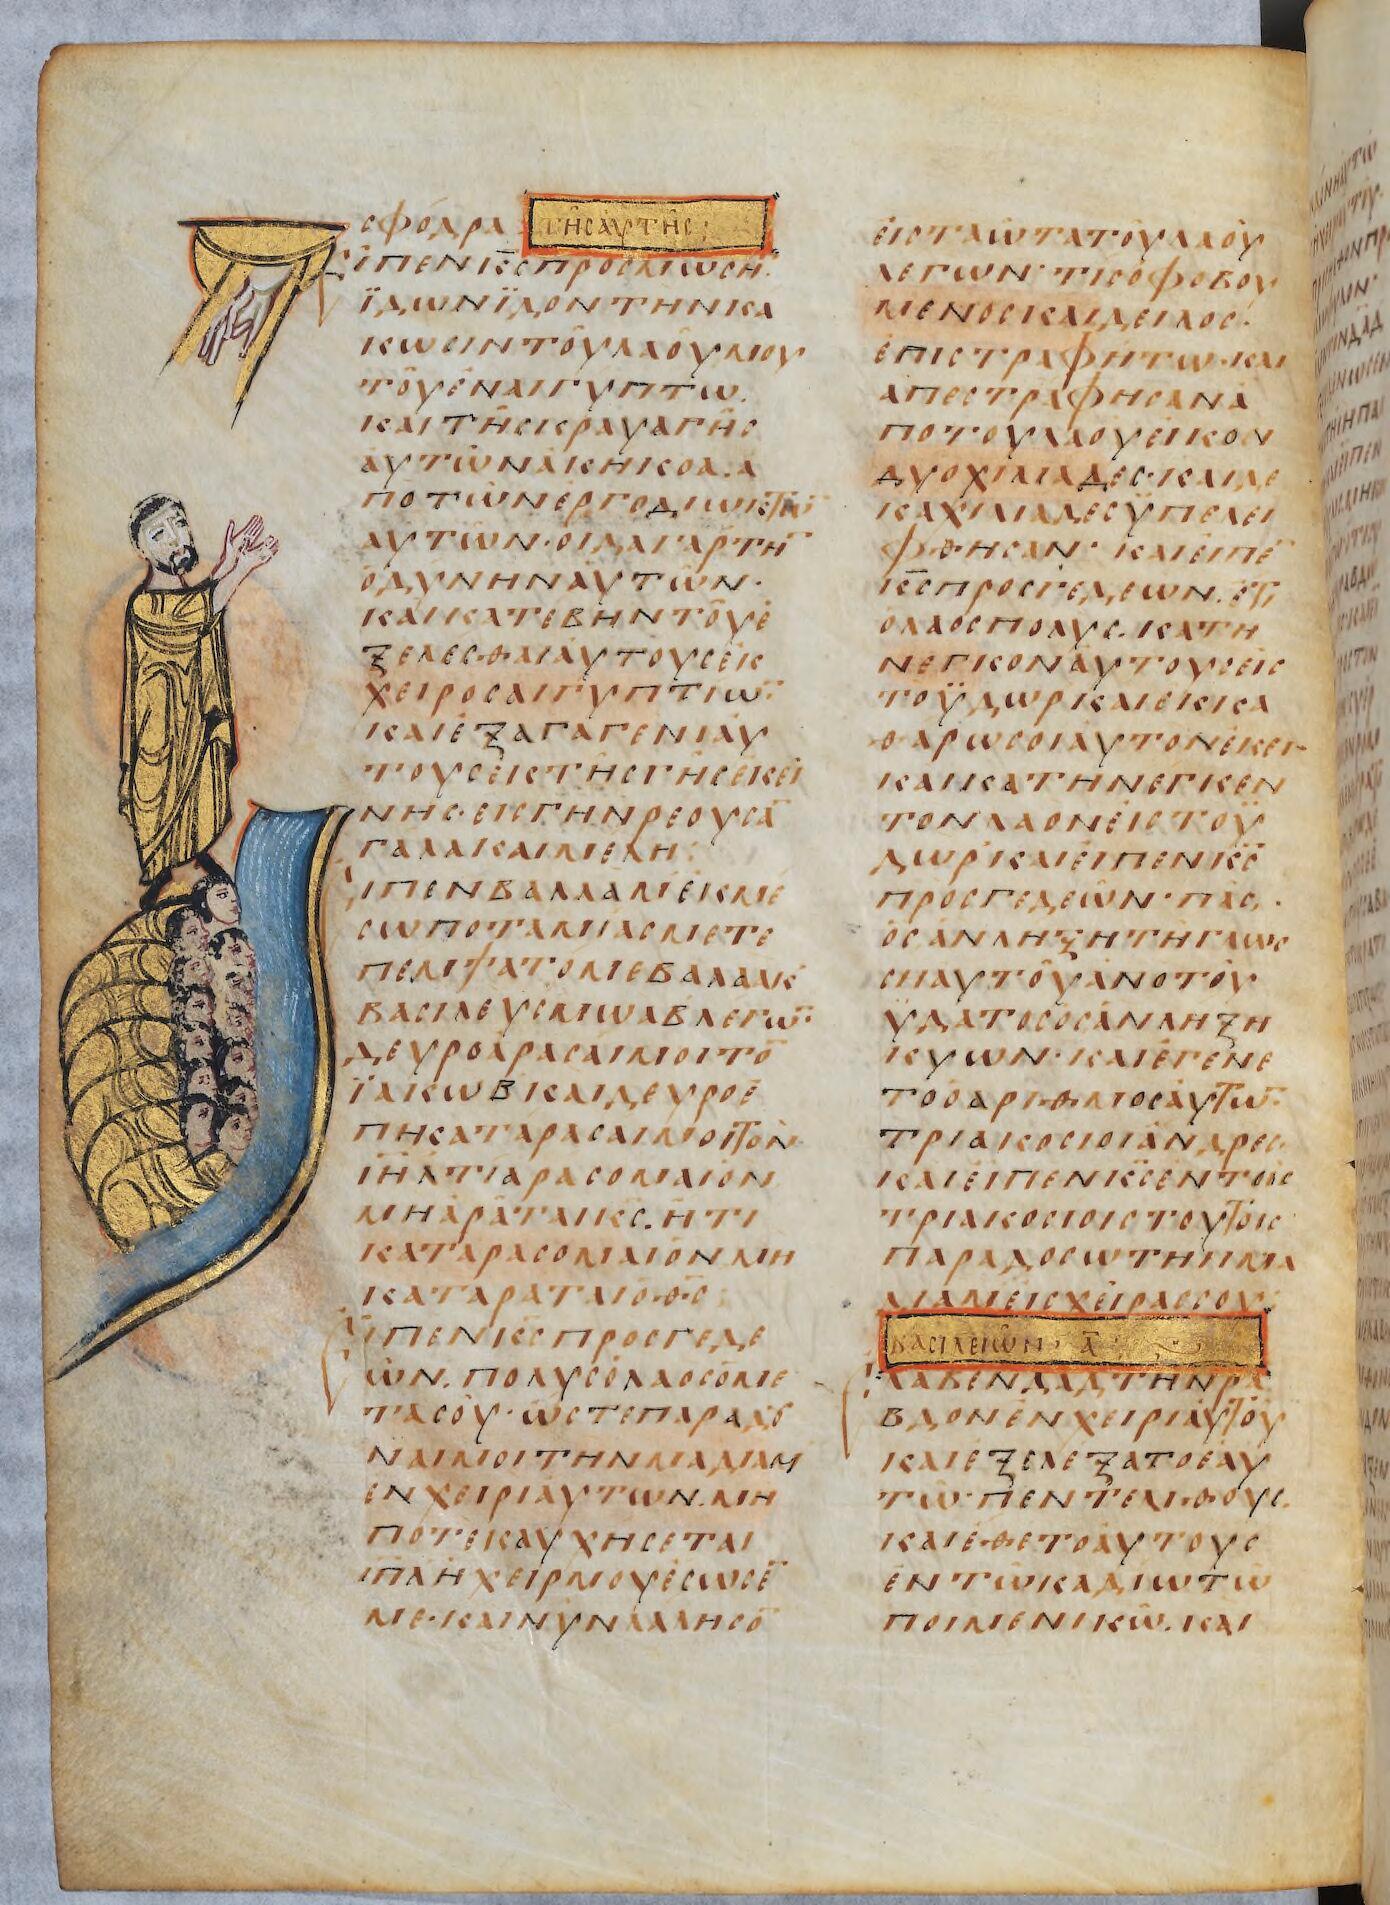 σφόδρα
τῆς αὐτῆς:
εἶπεν κ̅ς̅ προς μωσῆ:
ϊδὼν ϊδον την κα
κωσιν τοῦ λαοῦ μου
τοῦ ἐν αιγυπτω.
και τῆς κραυαγῆς
ἀυτῶν ἀκηκοα. ἀ
πο τῶν ἐργοδιωκτῶ̅
αυτῶν· οιδα γαρ τη̅
ὀδυνην ἀυτῶν·
και κατεβην τοῦ ἐ
ξελεσθαι ἀυτους ἐκ
χειρος αιγυπτιω̅·
και ἐξαγαγεν ἀυ
τους ἐκ τῆς γῆς ἐκεί
νης· εις γην ρεουσα̅
γαλα και μελη:
ειπεν βαλλαὰμ ἐκ με
σωποταμίας μετε
πεμψατο με βαλαακ
βασιλευς μωαβ λεγω̅·
δευρο ἀρασαι μοι το̅
ϊακωβ και δευρο ἐ
πηκαταρασαι μοι τὸν
ι̅η̅λ̅ τί ἀρασομαι ὁν
μη ἀρᾶται κ̅ς̅. ἢ τι
καταρασομαι ὁν μη
καταρᾶται ὁ θ̅ς̅:
εἶπεν κ̅ς̅ προς γεδε
ὼν. πολυς ὁ λαος ὁ με
τα σοῦ· ὡστε παραδȣ
ναι μοι την μαδιαμ
ἐν χειρι ἀυτων. μη
ποτε καυχησεται
ι̅η̅λ̅ ἡ χειρ μου ἐσωσε̅
με. και νῦν λαλησο̅
ἐις τα ὦτα τοῦ λαοῦ
λεγων· τις ὁ φοβου
μενος και δειλος.
ἐπιστραφήτω· και
απεστράφησαν ἀ
πο του λαοῦ εικον
δυο χιλιαδες· και δε
κα χιλιαδες ϋπελει
φθησαν· και ἐιπε̅
κ̅ς̅ προς γεδεων. ἐτι
ὁ λαος πολυς. κατη
νεγκον ἀυτους εἰς
το ϋδωρ και ἐκκα
θαρω σοι ἀυτον ἐκει
και κατηνεγκεν
τον λαον ἐις το ϋ
δωρ· και ἐιπεν κ̅ς̅
προς γεδεῶν· πᾶς
ὃς ἀν λήξη τῆ γλωσ
ση αυτοῦ ἀπο τοῦ
ϋδατος ὁς ἀν ληξη
κυων· και ἐγενε
το ὁ ἀριθμος ἀυτῶ̅·
τριακοσιοι ἀνδρες·
και ἐιπεν κ̅ς̅ ἐν τοῖς
τριακοσιοις τουτοις
παραδοσω την μα
διαμ ἐις χεῖρας σου:
βασιλειῶν α̅
λαβεν δ̅α̅δ̅ την ρα
βδον ἐν χειρι ἀυτοῦ
και ἐξελεξατο ἑαυ
τῶ· πεντε λιθους.
και ἐθετο ἀυτους
ἐν τῶ καδιω τῶ
ποιμενικῶ. και